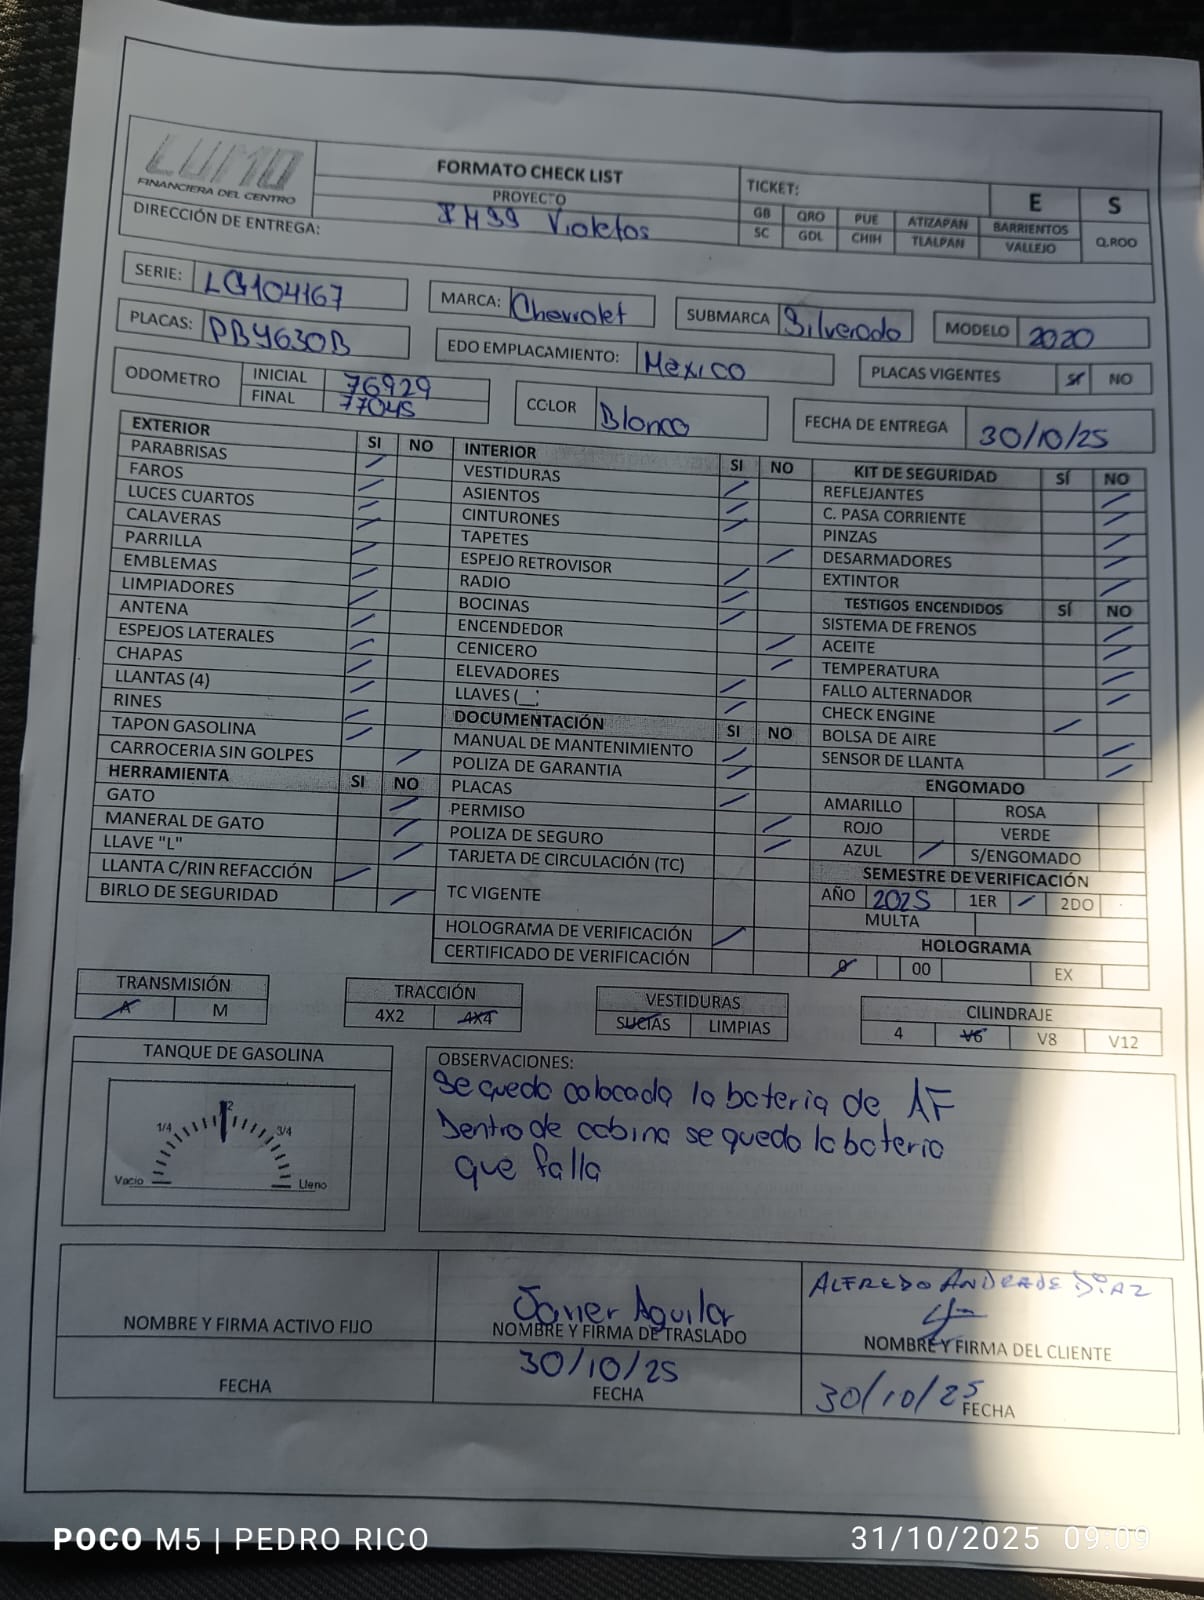 LUMO
FINANCIERA DEL CENTRO
FORMATO CHECK LIST
PROYECTO
IMSS Violetas
DIRECCIÓN DE ENTREGA:
TICKET: E S
GB QRO PUE ATIZAPAN BARRIENTOS Q.ROO
SC GDL CHIH TLALPAN VALLEJO
SERIE: LG104167 MARCA: Chevrolet SUBMARCA Silverado MODELO 2020
PLACAS: PBY630B EDO EMPLACAMIENTO: Mexico PLACAS VIGENTES SI NO
ODOMETRO INICIAL 76929
FINAL 77045
CCLOR Blanco FECHA DE ENTREGA 30/10/25
EXTERIOR SI NO
PARABRISAS
FAROS
LUCES CUARTOS
CALAVERAS
PARRILLA
EMBLEMAS
LIMPIADORES
ANTENA
ESPEJOS LATERALES
CHAPAS
LLANTAS (4)
RINES
TAPON GASOLINA
CARROCERIA SIN GOLPES
HERRAMIENTA SI NO
GATO
MANERAL DE GATO
LLAVE "L"
LLANTA C/RIN REFACCIÓN
BIRLO DE SEGURIDAD
INTERIOR SI NO
VESTIDURAS
ASIENTOS
CINTURONES
TAPETES
ESPEJO RETROVISOR
RADIO
BOCINAS
ENCENDEDOR
CENICERO
ELEVADORES
LLAVES (__;
DOCUMENTACIÓN SI NO
MANUAL DE MANTENIMIENTO
POLIZA DE GARANTIA
PLACAS
PERMISO
POLIZA DE SEGURO
TARJETA DE CIRCULACIÓN (TC)
TC VIGENTE
HOLOGRAMA DE VERIFICACIÓN
CERTIFICADO DE VERIFICACIÓN
KIT DE SEGURIDAD SÍ NO
REFLEJANTES
C. PASA CORRIENTE
PINZAS
DESARMADORES
EXTINTOR
TESTIGOS ENCENDIDOS SÍ NO
SISTEMA DE FRENOS
ACEITE
TEMPERATURA
FALLO ALTERNADOR
CHECK ENGINE
BOLSA DE AIRE
SENSOR DE LLANTA
ENGOMADO
AMARILLO ROSA
ROJO VERDE
AZUL S/ENGOMADO
SEMESTRE DE VERIFICACIÓN
AÑO 2025 1ER 2DO
MULTA
HOLOGRAMA
0 00 EX
TRANSMISIÓN
A M
TRACCIÓN
4X2 4X4
VESTIDURAS
SUCIAS LIMPIAS
CILINDRAJE
4 V6 V8 V12
TANQUE DE GASOLINA
1/4 2 3/4
Vacio Lleno
OBSERVACIONES:
Se quedo colocada la bateria de AF
Dentro de cabina se quedo la bateria
que falla
NOMBRE Y FIRMA ACTIVO FIJO
FECHA
Javier Aguilar
NOMBRE Y FIRMA DE TRASLADO
30/10/25
FECHA
ALFREDO ANDRADE DIAZ
NOMBRE Y FIRMA DEL CLIENTE
30/10/25
FECHA
POCO M5 | PEDRO RICO
31/10/2025 09:09